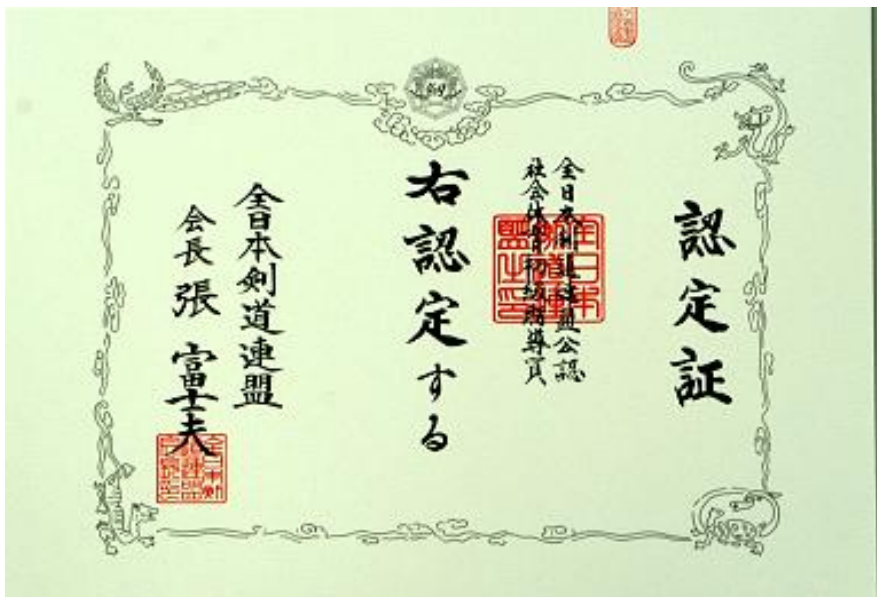 認定証
全日本剣道連盟公認
社会体育初級指導員
右認定する
全日本剣道連盟
会長 張 富士夫